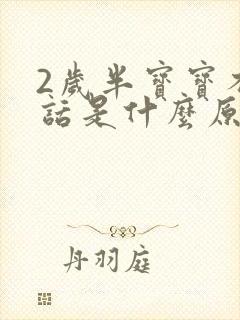 2歲半寶寶
話是什麼原
丹羽庭